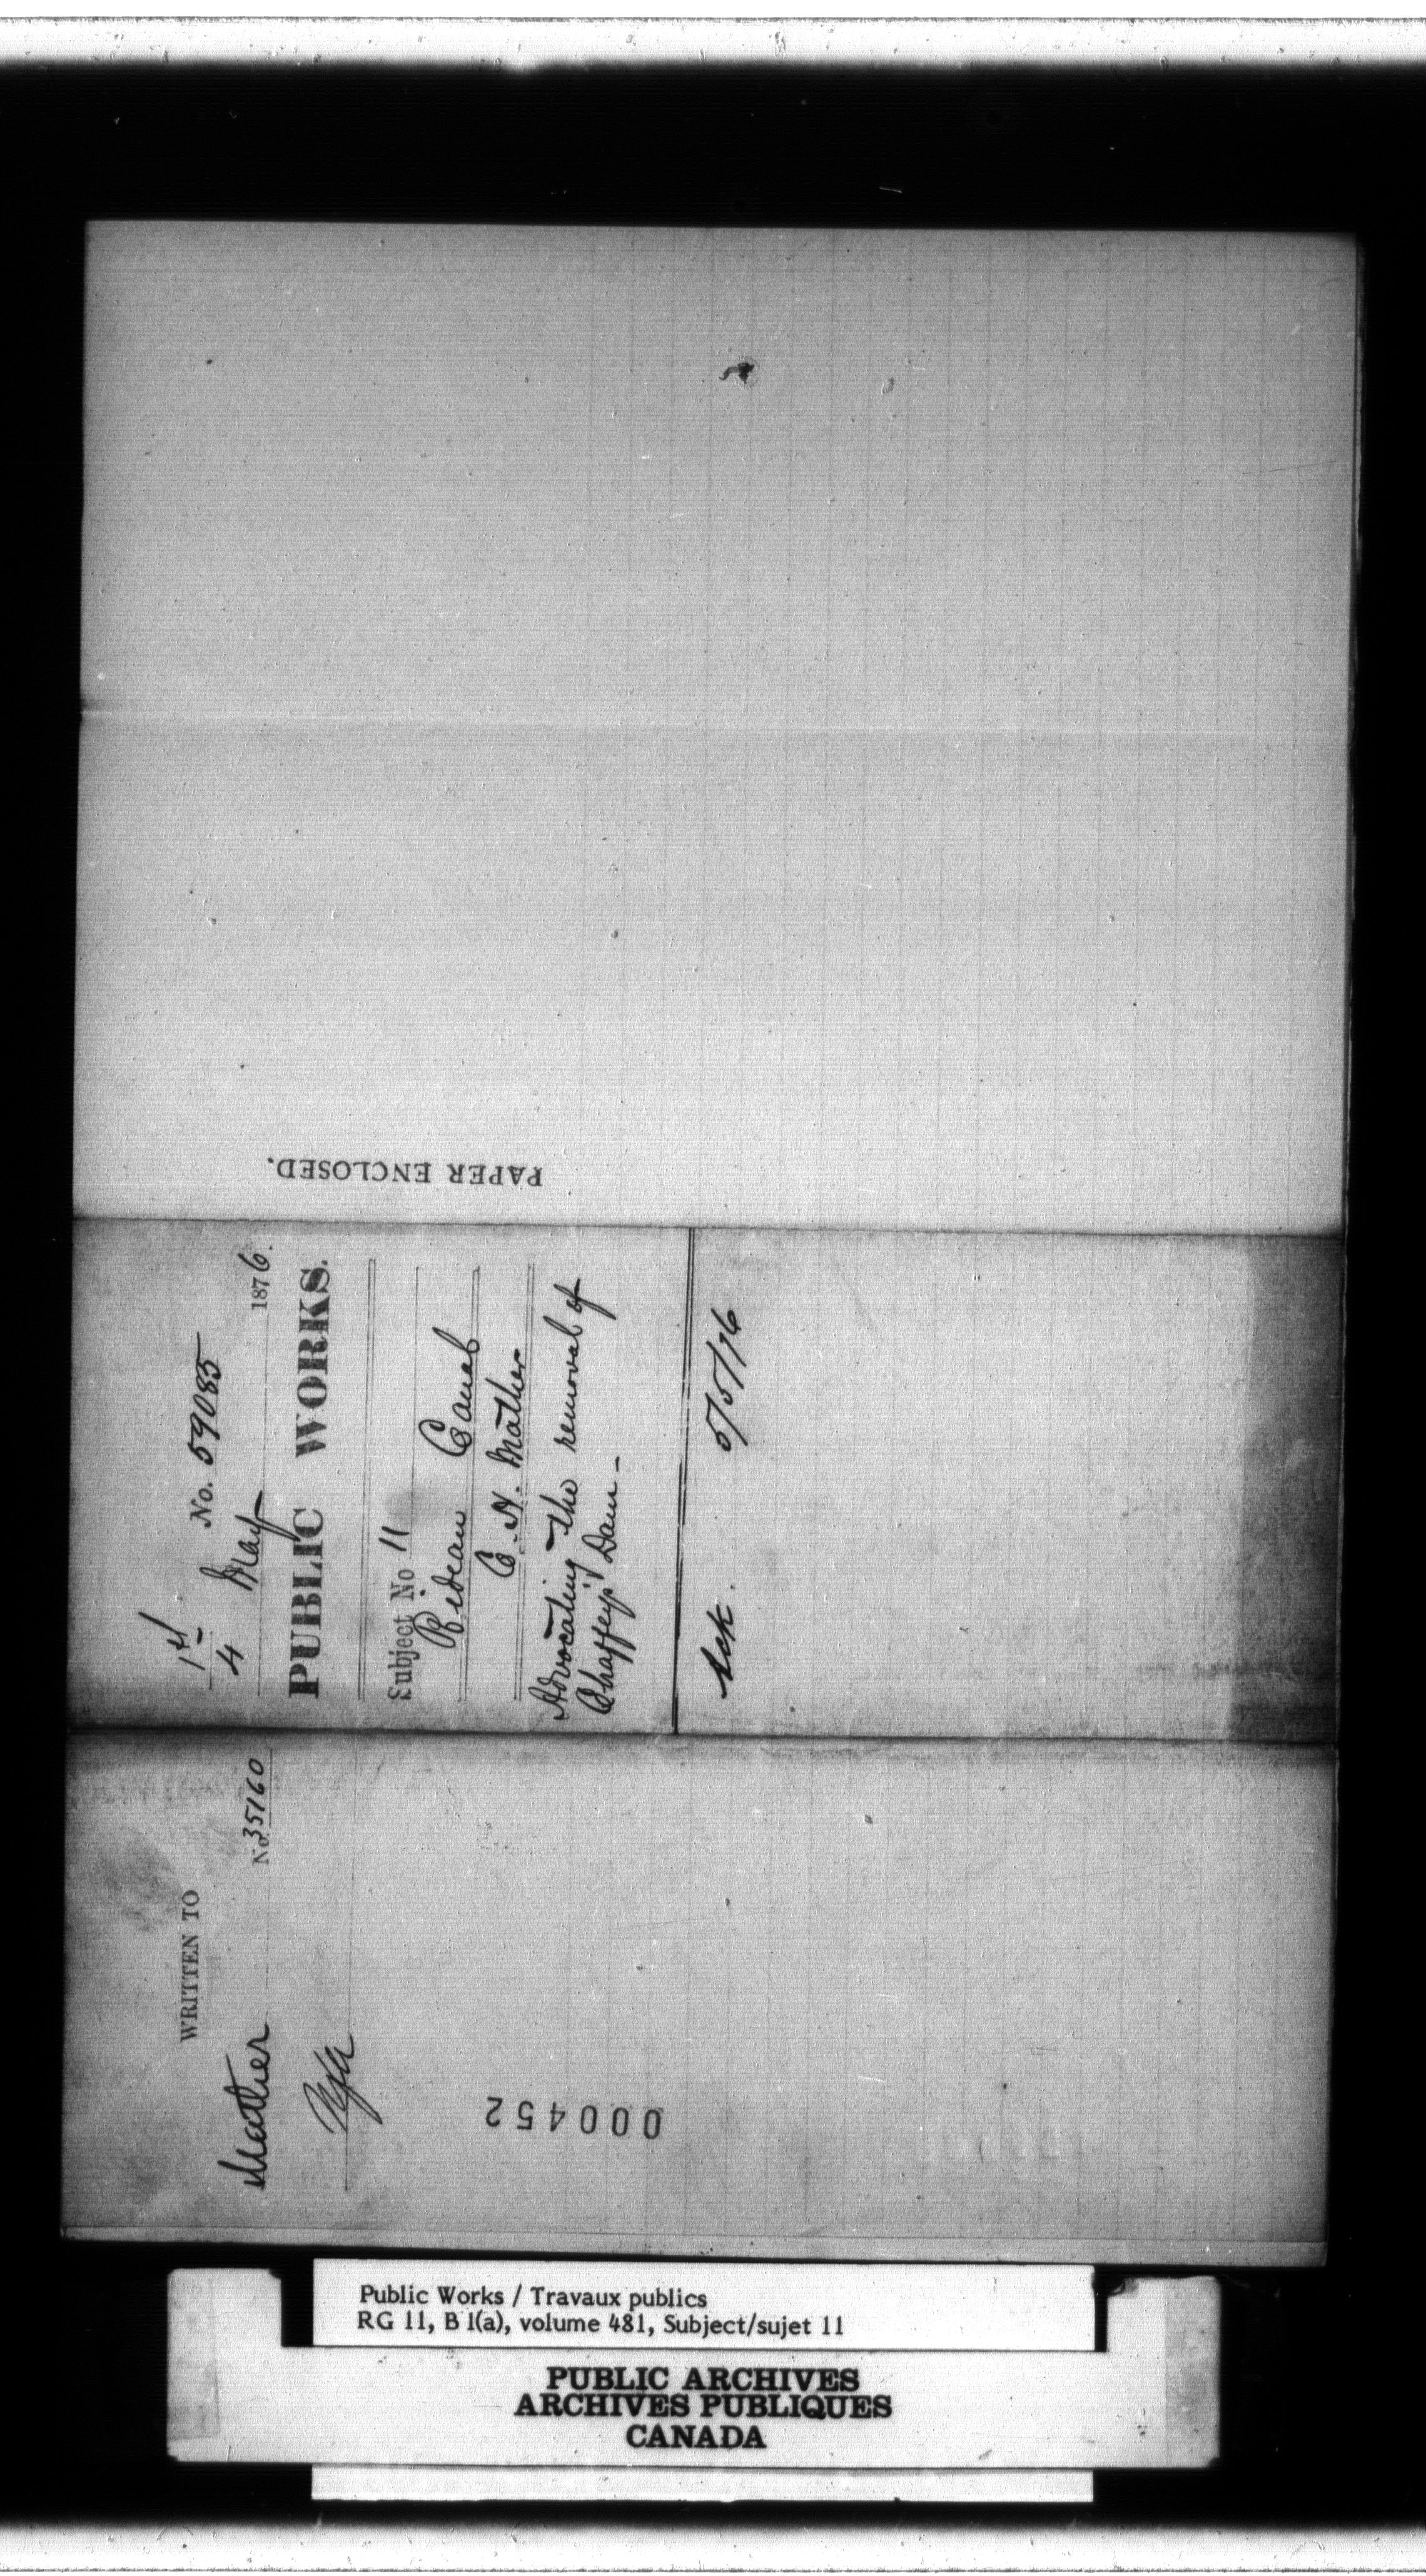 PAPER ENCLOSED.
1st
4
No. 59085
May 1876.
PUBLIC WORKS.
Subject No 11
Rideau Canal
C. H. Mather
Advocating the removal of
Chaffey's Dam -
Ack. 5/5/76
WRITTEN TO
Mather No. 35160
000452
Public Works / Travaux publics
RG 11, B 1(a), volume 481, Subject/sujet 11
PUBLIC ARCHIVES
ARCHIVES PUBLIQUES
CANADA